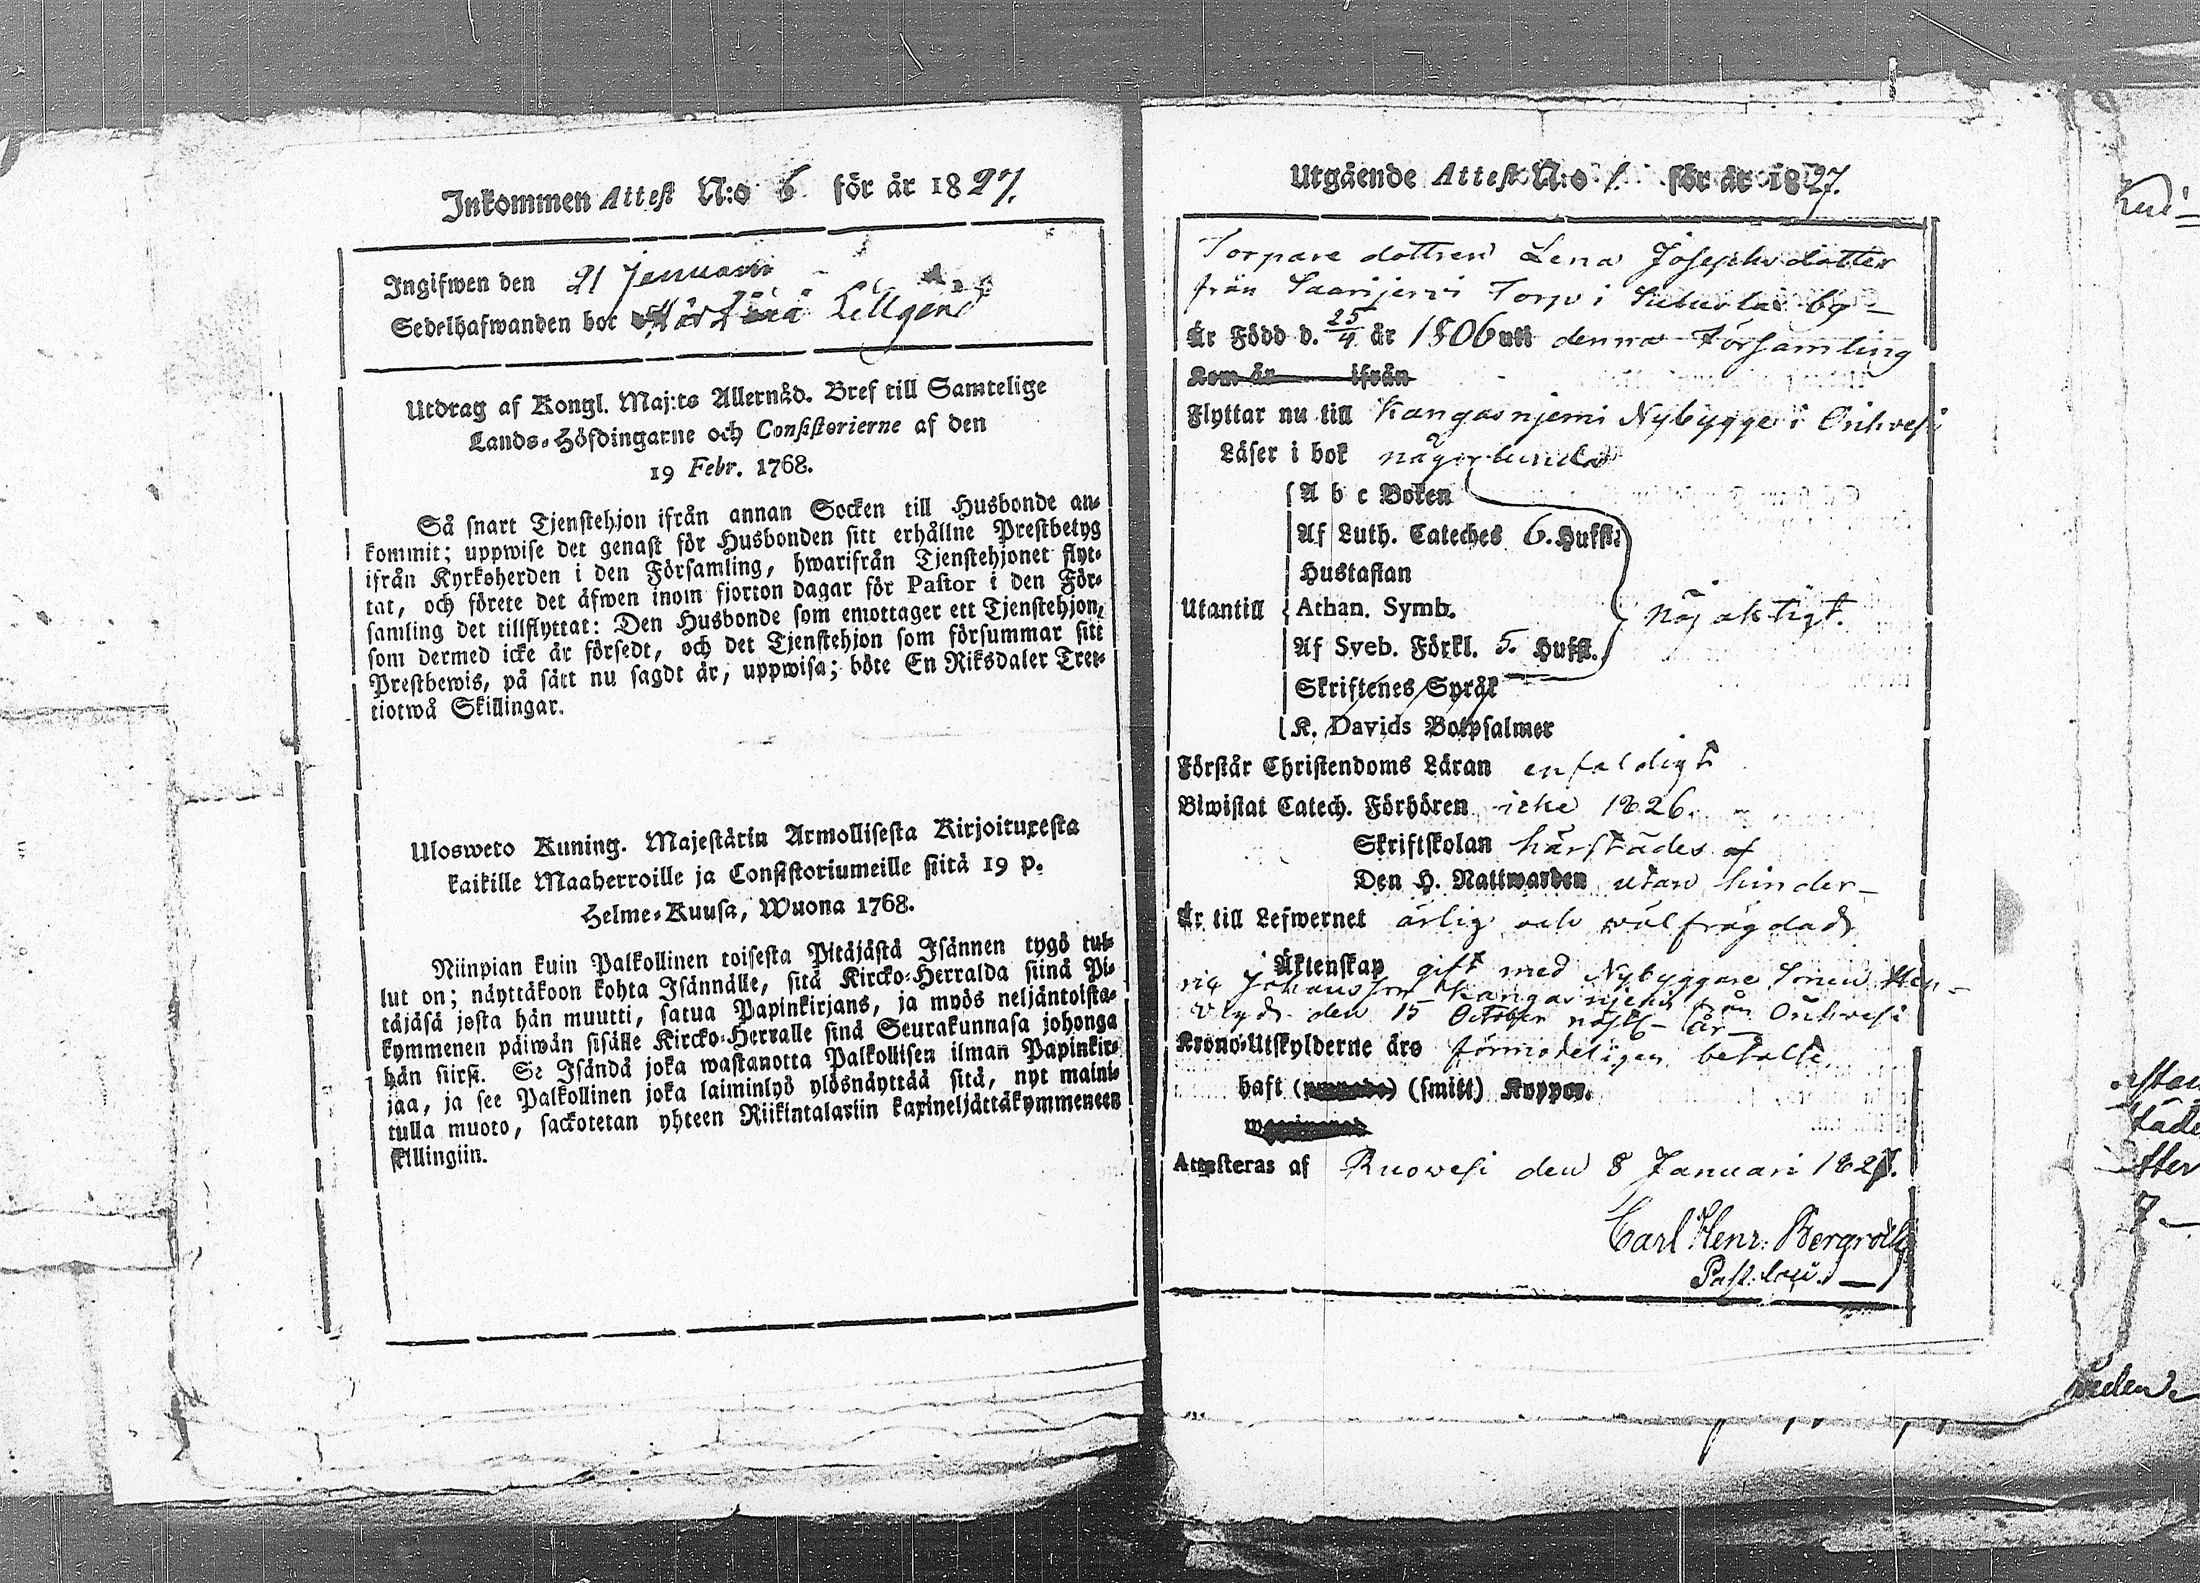 Inkommen Attest N:o 6 för år 1827.
Ingifwen den 21 Januarii
Sedelhafwanden bor Lillgård
Utdrag af Kongl. Maj:ts Allernåd. Bref till Samtelige
Lands-Höfdingarne och Consistorierne af den
19 Febr. 1768.
Så snart Tjenstehjon ifrån annan Socken till Husbonde an-
kommit; uppwise det genast för Husbonden sitt erhållne Prestbetyg
ifrån Kyrkoherden i den Församling, hwarifrån Tjenstehjonet flyt-
tat, och förete det äfwen inom fjorton dagar för Pastor i den För-
samling det tillflyttat: Den Husbonde som emottager ett Tjenstehjon,
som dermed icke är försedt, och det Tjenstehjon som försummar sitt
Prestbewis, på sätt nu sagdt är, uppwisa; böte En Riksdaler Tret-
tiotwå Skillingar.
Ulosweto Kuning. Majestätin Armollisesta Kirjoituxesta
kaikille Maaherroille ja Consistoriumeille siitä 19 p.
Helme-Kuusa, Wuona 1768.
Niinpian kuin Palkollinen toisesta Pitäjästä Isännen tygö tul-
lut on; näyttäkoon kohta Isännälle, sitä Kircko-Herralda siinä Pi-
täjäsä josta hän muutti, satua Papinkirjans, ja myös neljäntoista-
kymmenen päiwän sisälle Kircko-Herralle sinä Seurakunnasa johonga
hän siirsi. Se Isändä joka wastanotta Palkollisen ilman Papinkir-
jaa, ja see Palkollinen joka laiminlyö ylösnäyttää sitä, nyt maini-
tulla muoto, sackotetan yhteen Riikintalariin kaxineljättäkymmeneen
skillingiin.
Utgående Attest N:o 1. för år 1827.
Torpare dottren Lena Josephsdotter
från Saarijervi Torp i by
Är Född d. 25/4 år 1806 uti denna Församling
Kom år ifrån
Flyttar nu till Kangasnjemi Nybygge i Onkvesi
Läser i bok någorlunda
A b c Boken
Af Luth. Cateches 6. Hufst.
Hustaflan
Utantill Athan. Symb. nöjaktigt.
Af Sveb. Förkl. 5. Hufst.
Skriftenes Språk
K. Davids Botpsalmer
Förstår Christendoms Läran enfaldigt
Biwistat Catech. Förhören icke 1826.
Skriftskolan härstädes af
Den H. Nattwarden utan hinder
Är till Lefwernet ärlig och välfrägdad
Äktenskap gift med Nybyggare Sonen Hen-
ric Johansson Kangasnjemi från Onkvesi
den 15 October näst. år
Krono-Utskylderne äro förmodeligen betalte.
haft (smitt) Koppor.
Attesteras af Ruovesi den 8 Januari 1827.
Carl Henr. Bergroth
Past.